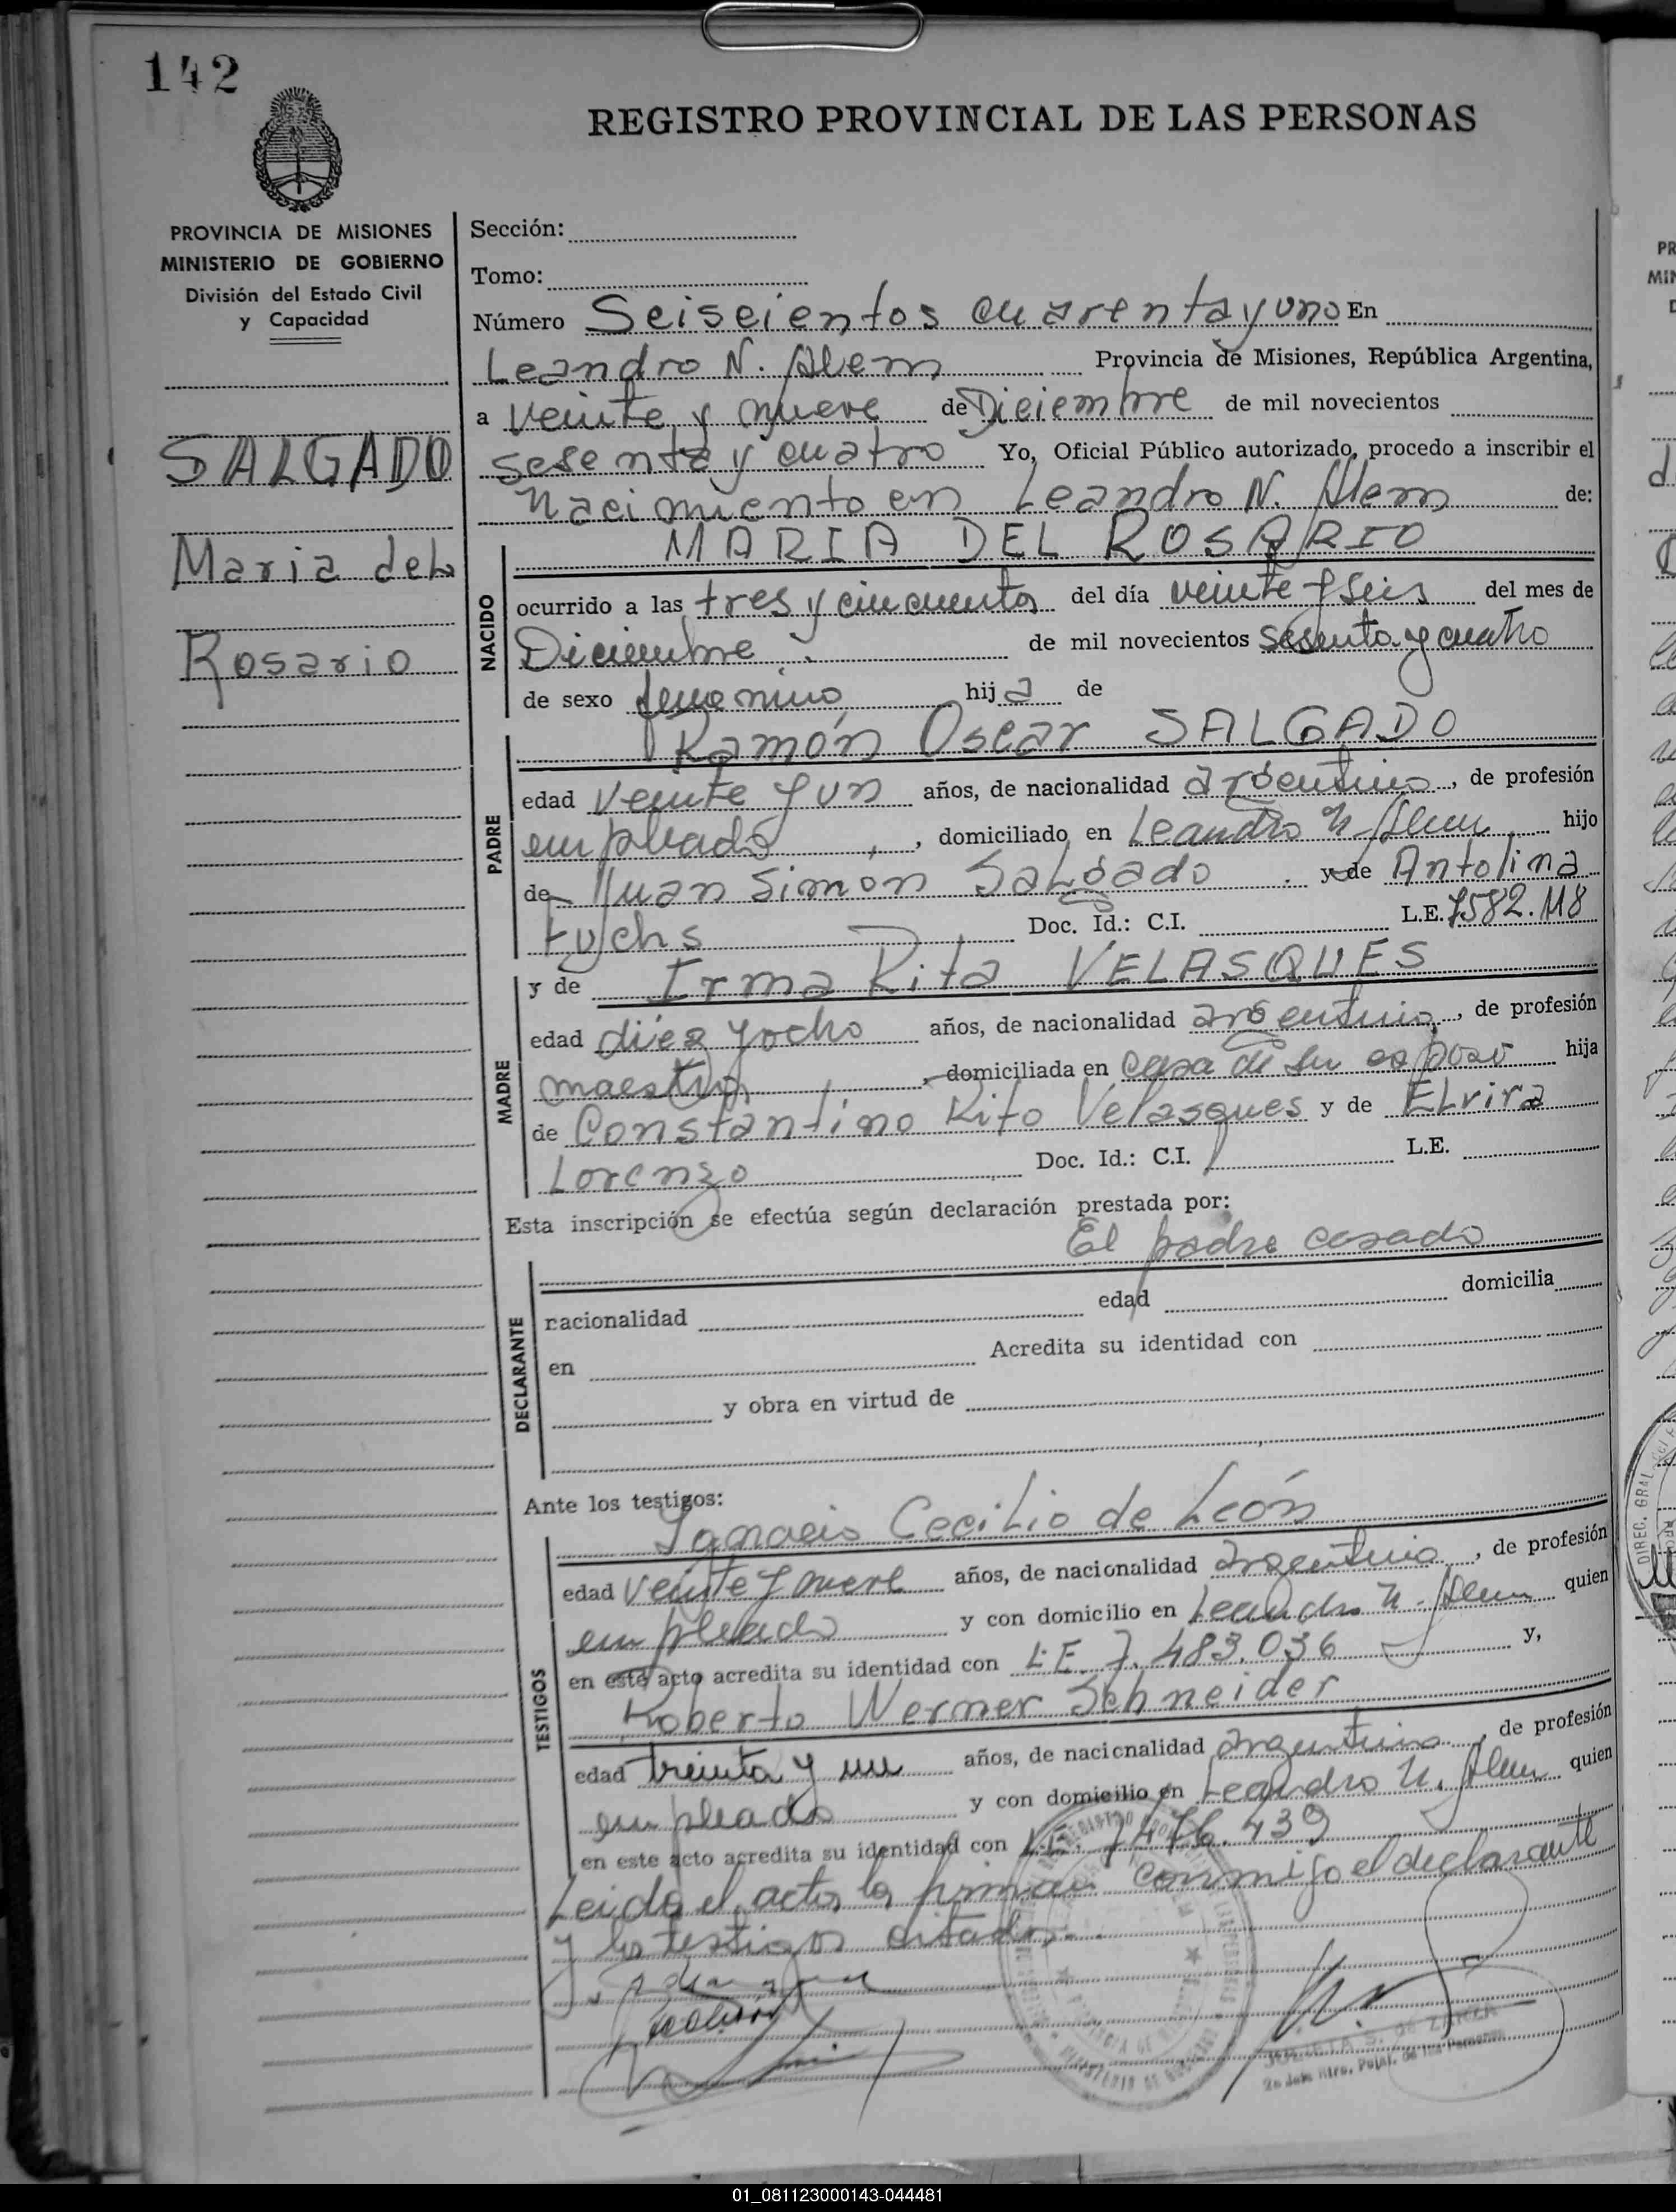 142
REGISTRO PROVINCIAL DE LAS PERSONAS
PROVINCIA DE MISIONES
MINISTERIO DE GOBIERNO
División del Estado Civil
y Capacidad
SALGADO
Maria del
Rosario
Sección:
Tomo:
Número Seiscientos cuarenta y uno En
Leandro N. Alem Provincia de Misiones, República Argentina,
a veinte y nueve de Diciembre de mil novecientos
sesenta y cuatro Yo, Oficial Público autorizado, procedo a inscribir el
nacimiento en Leandro N. Alem de:
MARIA DEL ROSARIO
NACIDO
ocurrido a las tres y cincuenta del día veinte y seis del mes de
Diciembre de mil novecientos sesenta y cuatro
de sexo femenino hija de
Ramón Oscar SALGADO
PADRE
edad veinte y un años, de nacionalidad argentino, de profesión
empleado, domiciliado en Leandro N. Alem hijo
de Juan Simon Salgado y de Antolina
Fuchs Doc. Id.: C.I. L.E. 7582.118
y de Irma Rita VELASQUES
MADRE
edad diez y ocho años, de nacionalidad argentina, de profesión
maestra, domiciliada en casa de su esposo hija
de Constantino Rito Velasques y de Elvira
Lorenzo Doc. Id.: C.I. L.E.
Esta inscripción se efectúa según declaración prestada por:
El padre casado
DECLARANTE
nacionalidad edad domicilia
en Acredita su identidad con
y obra en virtud de
Ante los testigos:
Ignacio Cecilio de León
TESTIGOS
edad veinte y nueve años, de nacionalidad argentino, de profesión
empleado y con domicilio en Leandro N. Alem quien
en este acto acredita su identidad con L.E. 7.483.036 y,
Roberto Werner Schneider
edad treinta y un años, de nacionalidad argentino, de profesión
empleado y con domicilio en Leandro N. Alem quien
en este acto acredita su identidad con L.E. 7476.439
Leido el acta la firman conmigo el declarante
y los testigos citados.
01_081123000143-044481